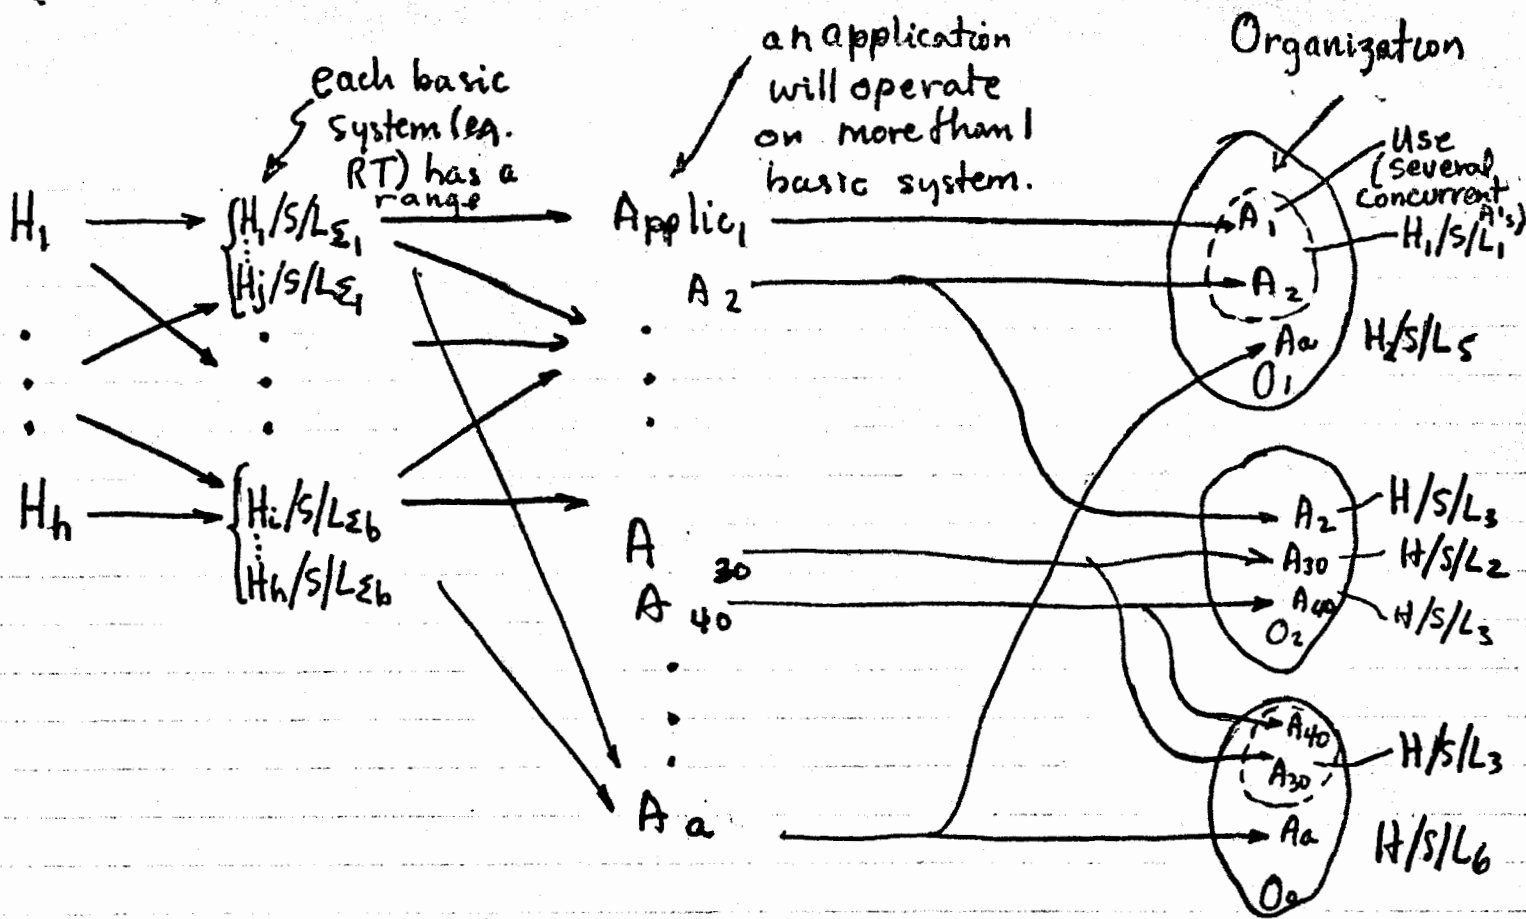 each basic
system (eg.
RT) has a
range
an application
will operate
on more than 1
basic system.
Organization
Use
(several
concurrent
A's)
H1
Hh
H1/S/LΣ1
Hj/S/LΣ1
Hi/S/LΣb
Hh/S/LΣb
Applic1
A2
A30
A40
Aa
A1
A2
Aa
O1
H1/S/L1
H2/S/L5
A2
A30
A40
O2
H/S/L3
H/S/L2
H/S/L3
A40
A30
Aa
H/S/L3
H/S/L6